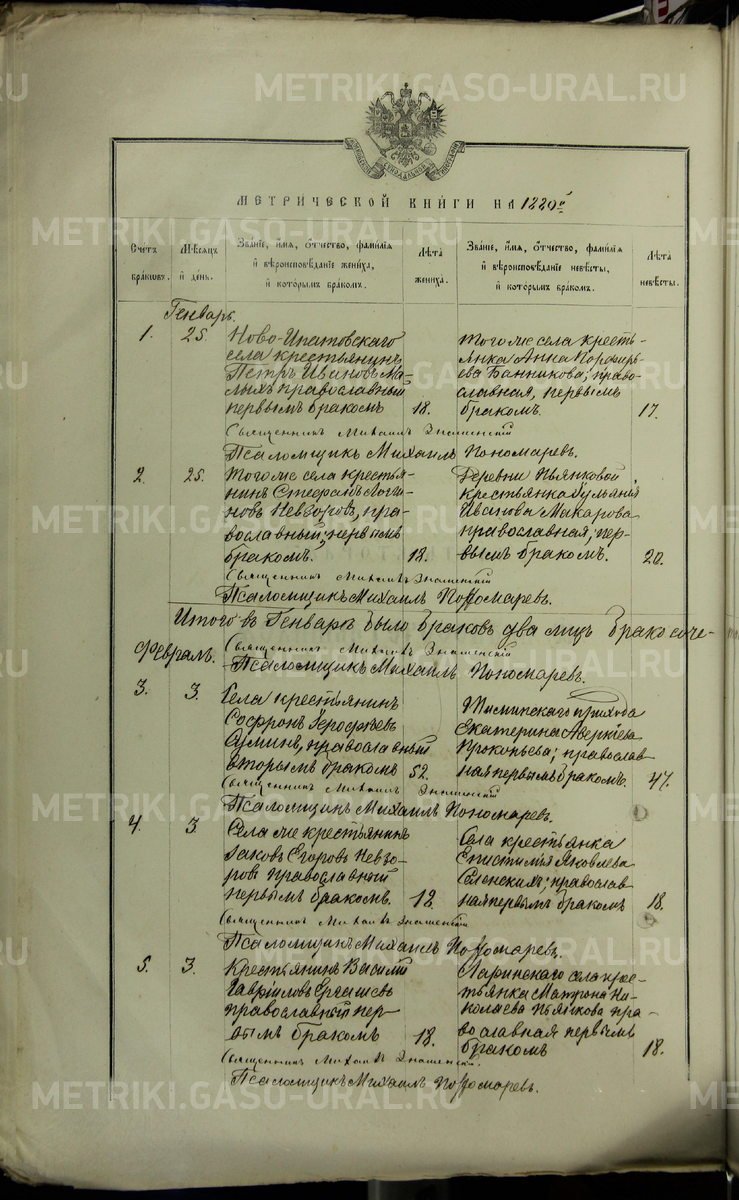 МЕТРИЧЕСКОЙ КНИГИ НА 1880й
Счетъ браковъ.
Мѣсяцъ и день.
Званіе, имя, отчество, фамилія и вѣроисповѣданіе жениха, и которымъ бракомъ.
Лѣта жениха.
Званіе, имя, отчество, фамилія и вѣроисповѣданіе невѣсты, и которымъ бракомъ.
Лѣта невѣсты.
Генварь.
1. 25. Ново-Ипатовскаго
села крестьянинъ
Петръ Ивановъ Ма-
лыхъ православный
первымъ бракомъ 18.
того же села кресть-
янка Анна Порфирь-
ева Банникова; право-
славная, первымъ
бракомъ. 17.
Священникъ Михаилъ Знаменскій
Псаломщикъ Михаилъ Пономаревъ.
2. 25. того же села крестья-
нинъ Стефанъ Логи-
новъ Невзоровъ, пра-
вославный; первымъ
бракомъ. 18.
Деревни Пьянковой
крестьянка Ульянія
Иванова Макарова
православная, пер-
вымъ бракомъ. 20.
Священникъ Михаилъ Знаменскій
Псаломщикъ Михаилъ Пономаревъ.
Итого въ Генварѣ было браковъ два лицъ бракосоче-
Священникъ Михаилъ Знаменскій
Февраль.
Псаломщикъ Михаилъ Пономаревъ.
3. 3. Села крестьянинъ
Софронъ Ерофѣевъ
православный
вторымъ бракомъ 52.
прихода
Екатерина Аверкіева
Прокопьева; православ
ная первымъ бракомъ. 47.
Священникъ Михаилъ Знаменскій
Псаломщикъ Михаилъ Пономаревъ.
4. 3. Села же крестьянинъ
Іаковъ Егоровъ Невзо-
ровъ православный
первымъ бракомъ. 18.
Села крестьянка
Епистимія Яковлева
православ
ная первымъ бракомъ 18.
Священникъ Михаилъ Знаменскій
Псаломщикъ Михаилъ Пономаревъ.
5. 3. Крестьянинъ Василій
Гавріиловъ
православный пер-
вымъ бракомъ 18.
Ларинскаго села крес-
тьянка Матрона Ни-
колаева Пьянкова пра-
вославная первымъ
бракомъ 18.
Священникъ Михаилъ Знаменскій.
Псаломщикъ Михаилъ Пономаревъ.
METRIKI.GASO-URAL.RU